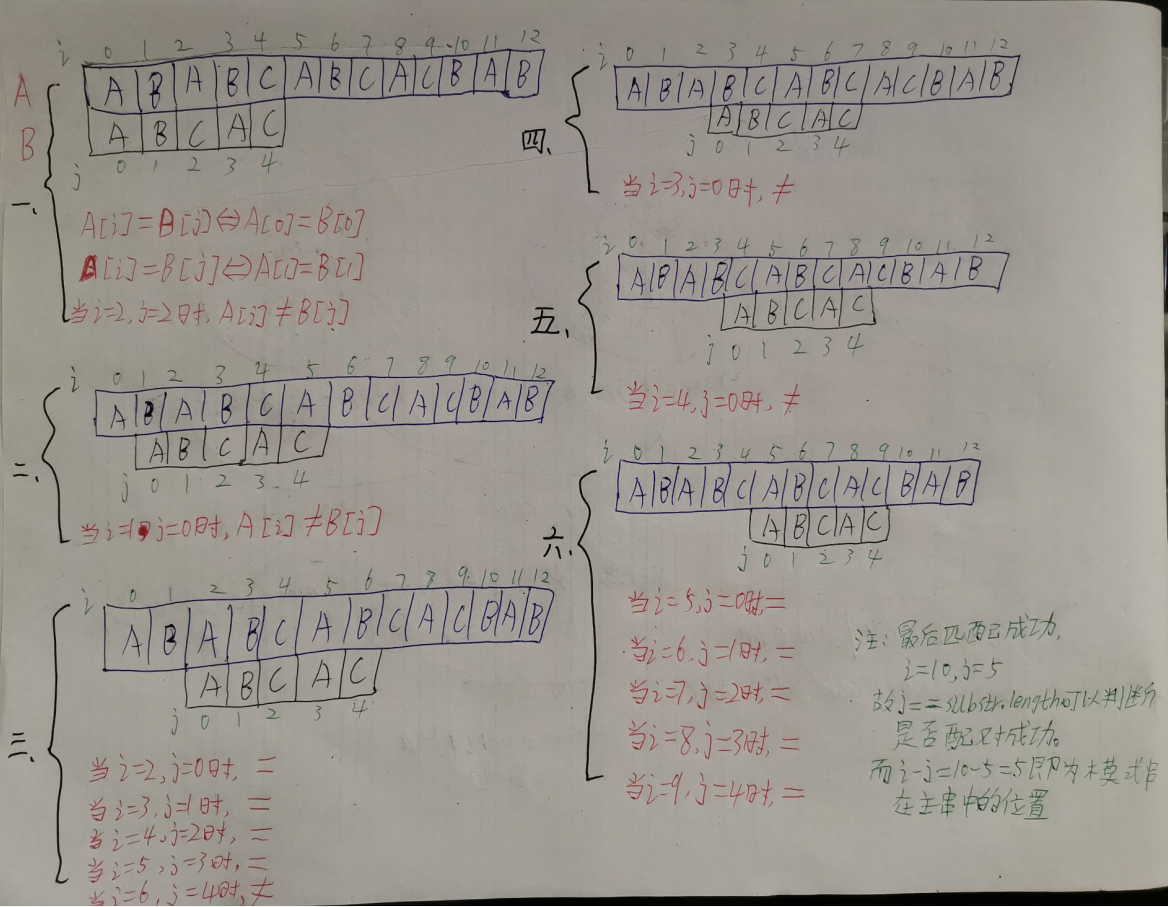 i 0 1 2 3 4 5 6 7 8 9 10 11 12
A A B A B C A B C A C B A B
B A B C A C
j 0 1 2 3 4
一、
A[i]=B[j]⇔A[0]=B[0]
A[i]=B[j]⇔A[1]=B[1]
当i=2,j=2时,A[i]≠B[j]
i 0 1 2 3 4 5 6 7 8 9 10 11 12
A B A B C A B C A C B A B
A B C A C
二、
j 0 1 2 3 4
当i=1,j=0时,A[i]≠B[j]
i 0 1 2 3 4 5 6 7 8 9 10 11 12
A B A B C A B C A C B A B
A B C A C
j 0 1 2 3 4
三、
当i=2,j=0时,=
当i=3,j=1时,=
当i=4,j=2时,=
当i=5,j=3时,=
当i=6,j=4时,≠
i 0 1 2 3 4 5 6 7 8 9 10 11 12
A B A B C A B C A C B A B
A B C A C
四、
j 0 1 2 3 4
当i=3,j=0时,≠
i 0 1 2 3 4 5 6 7 8 9 10 11 12
A B A B C A B C A C B A B
A B C A C
五、
j 0 1 2 3 4
当i=4,j=0时,≠
i 0 1 2 3 4 5 6 7 8 9 10 11 12
A B A B C A B C A C B A B
A B C A C
六、
j 0 1 2 3 4
当i=5,j=0时=
当i=6,j=1时,=
当i=7,j=2时,=
当i=8,j=3时,=
当i=9,j=4时,=
注:最后匹配已成功,
i=10,j=5
故j==substr.length可以判断
是否配对成功。
而i-j=10-5=5即为模式串
在主串中的位置